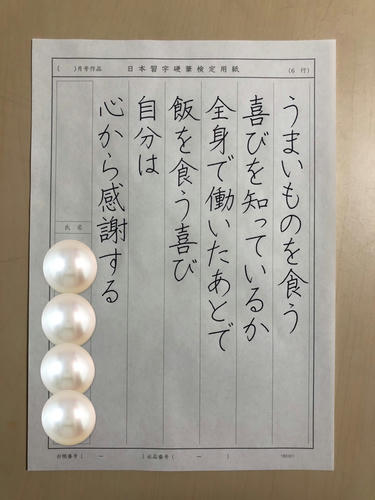 ( )月号作品 日本習字硬筆検定用紙 (6 行)
うまいものを食う
喜びを知っているか
全身で働いたあとで
飯を食う喜び
自分は
心から感謝する
氏名
お帳番号 ( － ) 出品番号 ( － )